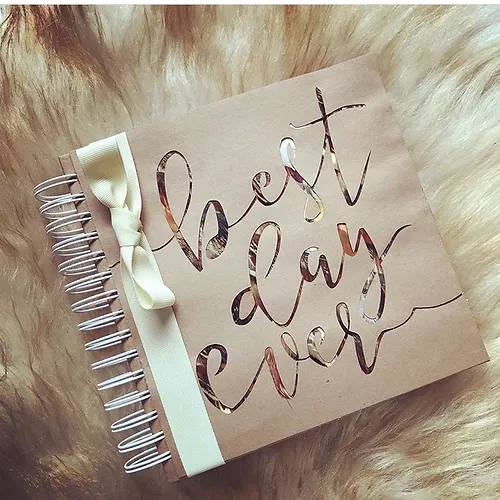 best
day
ever